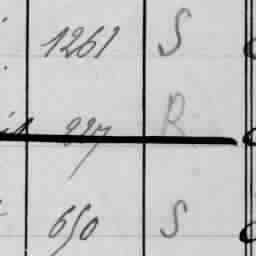 1261 S
227 R
650 S